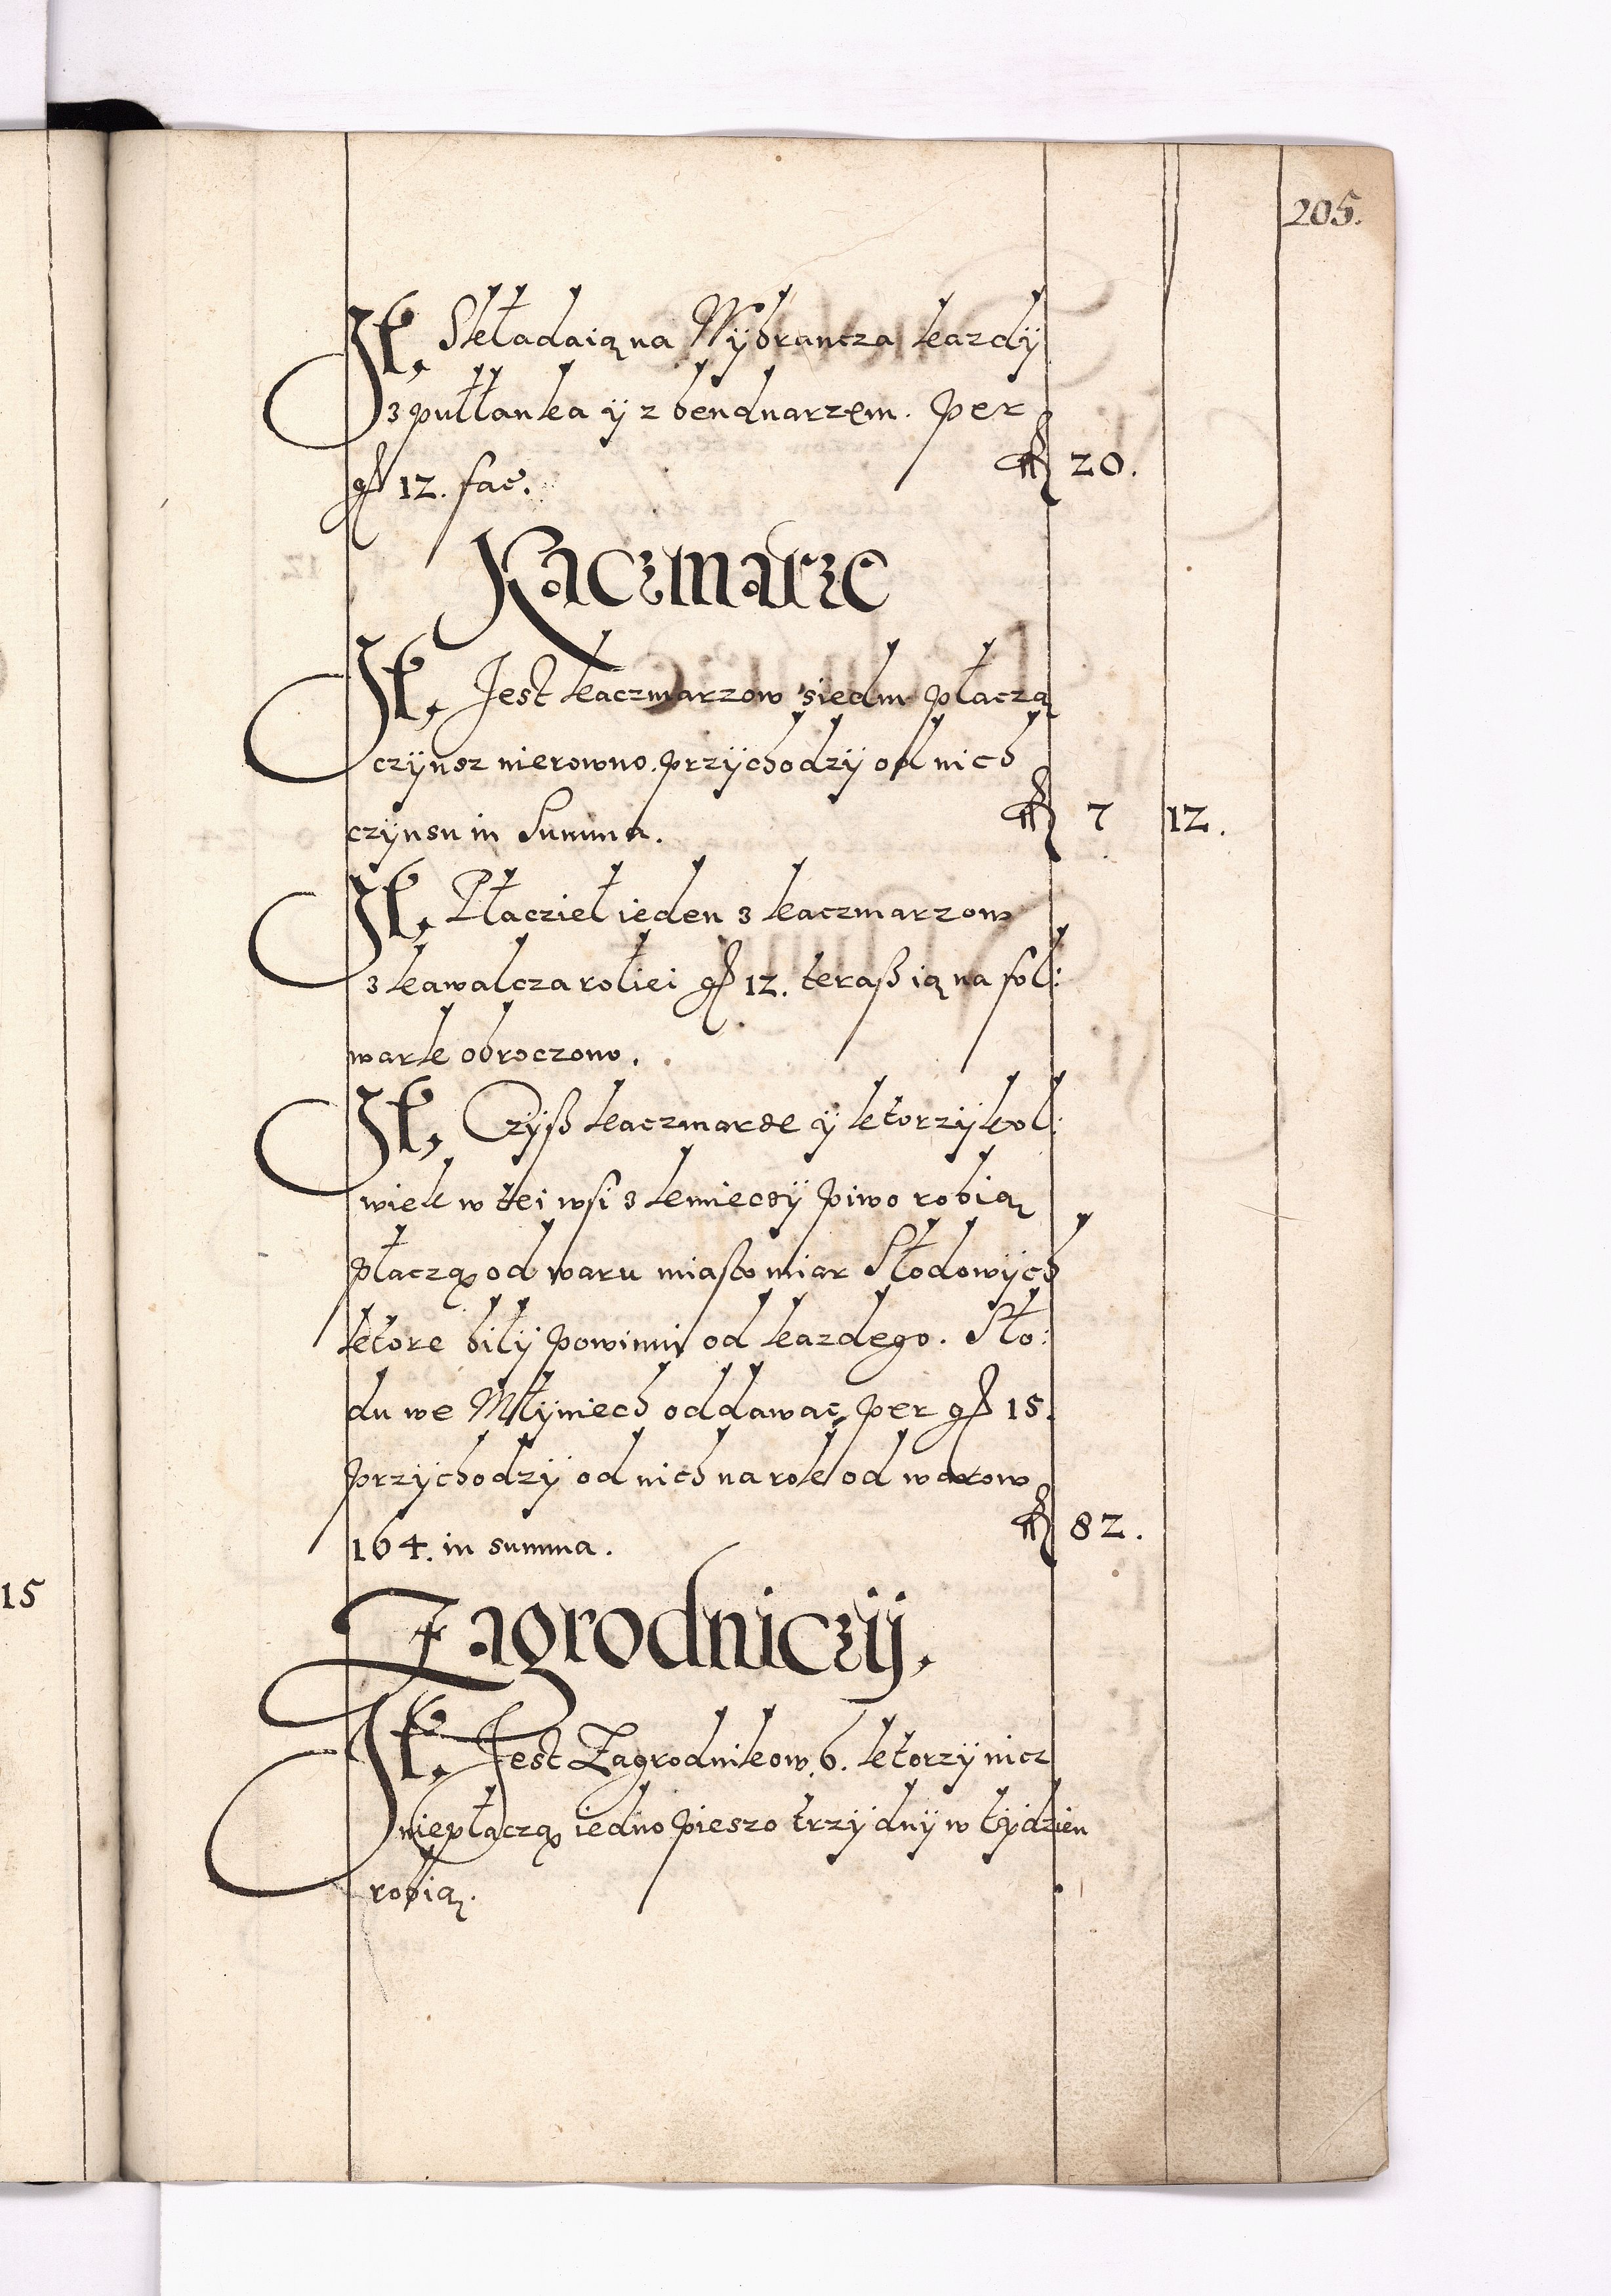 205.
It. Składaią na Wÿbrancza kazdÿ
z pułłanka ÿ z bendnarzem. per
gr 12. fac.
fl 20.
Kaczmarze
It. Jest kaczmarzow siedm płaczą
czÿnsz nierowno. przÿchodzÿ od nich
czÿnsu in Summa.
fl 7 12.
It. Płacziel ieden z kaczmarzow
z kawalcza roliei gr 12. teraß ią na fol:
wark obroczono.
It. Czÿß kaczmarze ÿ ktorzÿkol:
wiek w tei wsi z kmieczÿ piwo robią
płaczą od waru miasto miar Słodowÿch
ktore bilÿ powinni od kazdego. Sło:
du we Młÿniech oddawac per gr 15.
przÿchodzÿ od nich na rok od warow
164. in summa.
fl 82.
Zagrodniczÿ.
It. Jest Zagrodnikow. 6. ktorzÿ nicz
niepłaczą iedno pieszo trzÿ dnÿ w tÿdzien
robią.
15